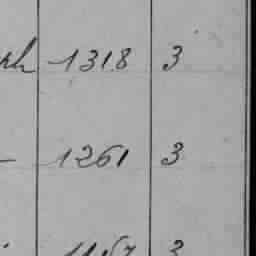 1318 3
1261 3
3